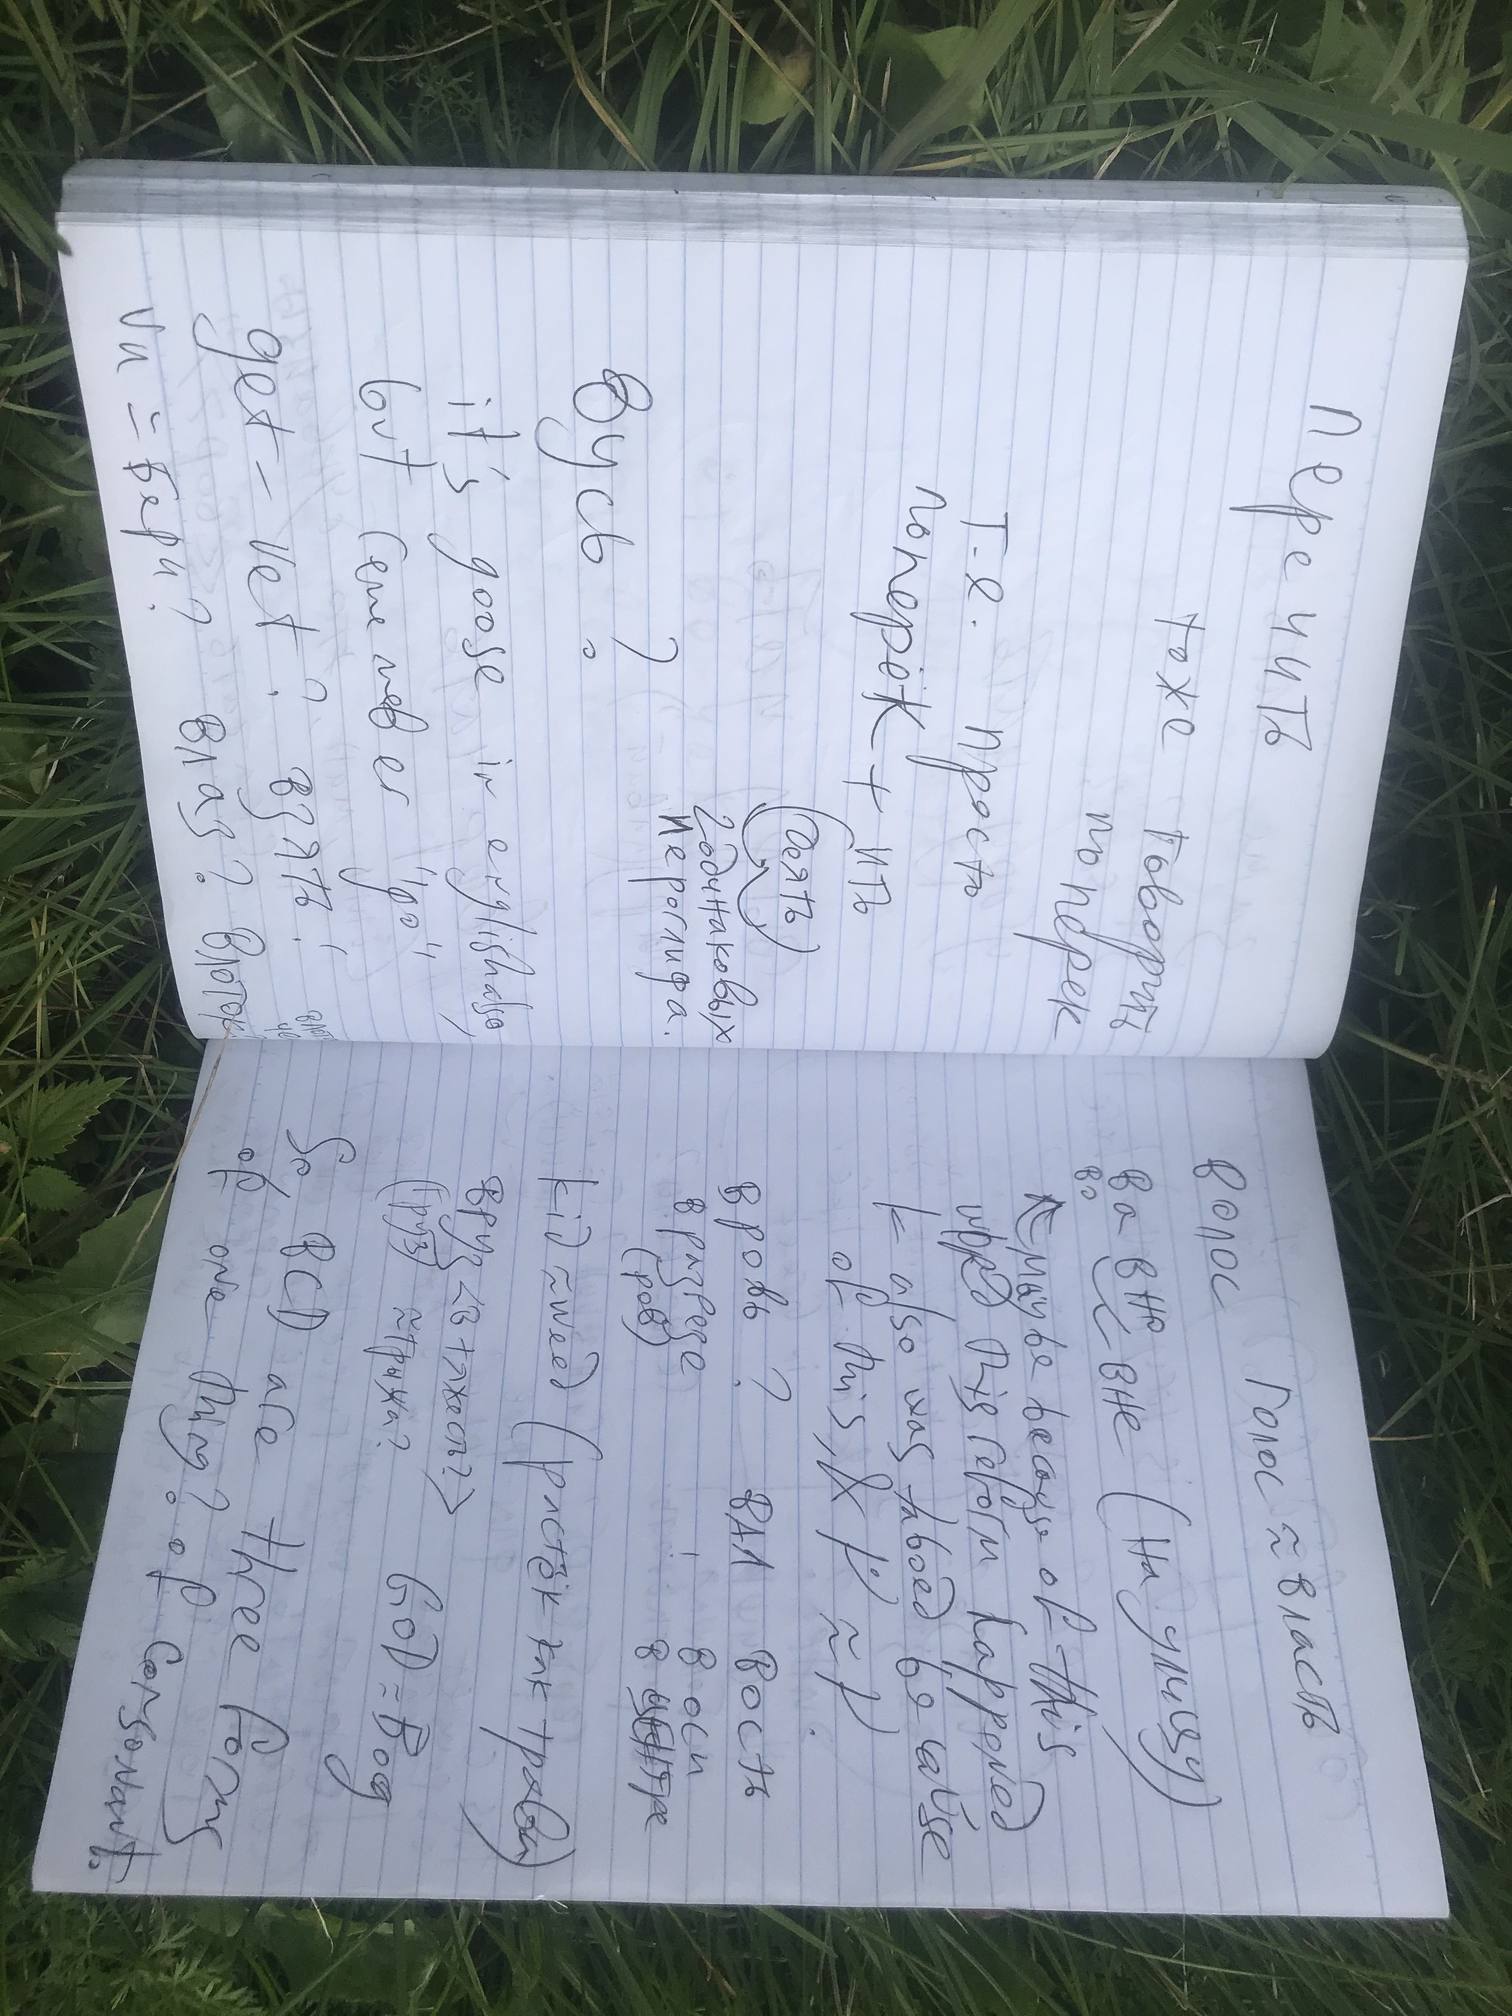 перечить
тоже говорить
поперек
т.е. просто
поперёк + ить
(деять)
2 одинаковых
иероглифа.
вусь?
it's goose in english also,
but (еще нов er "go",
get - vet? взять!
vи = бери? влаз? влоток?
волос голос ≈ власть
вавно вне (на улицу)
во
maybe because of this
word this reform happened
k also was taboed because
of this, & k ≈ ?
вровь? вал вость
в разрезе ! в оси
(ров) в центре
kid ≈ weed (растёт как трава)
вруз <в+яжесть?>
(груз) ≈ грыжа? GOD = Вод
So BCD are three forms
of one thing? of consonant.